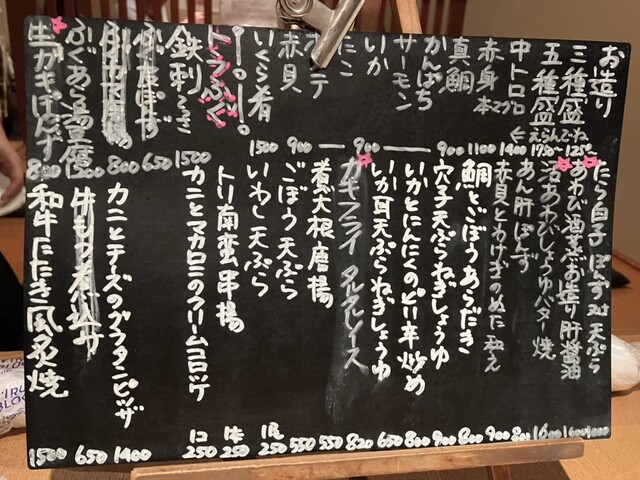 お造り
三種盛 1250
五種盛 えらんでね 1750
中トロ 1400
赤身 本マグロ 1100
真鯛 900
かんぱち
サーモン
いか 900
たこ
赤貝 900
いくら肴 1500
トラフグ
鉄刺 1500
650
800
ふぐあら湯豆腐 1500
生ガキぽんず 800
たら白子 ぽんず 又は 天ぷら 1000
あわび酒蒸お造り肝醤油 1600
活あわびしょうゆバター焼 1600
あん肝ぽんず 800
赤貝とわけぎのぬた和え 900
鯛とごぼうあらだき 800
穴子天ぷらねぎしょうゆ 900
いかとにんにくのピリ辛炒め 800
いか耳天ぷらねぎしょうゆ 650
カキフライ タルタルソース 820
煮大根唐揚 550
ごぼう天ぷら 550
いわし天ぷら 1尾 250
トリ南蛮串揚 1本 250
カニとマカロニのクリームコロッケ 1コ 250
カニとチーズのグラタンピッザ 1400
牛もつ煮込み 650
和牛たたき風炙焼 1500